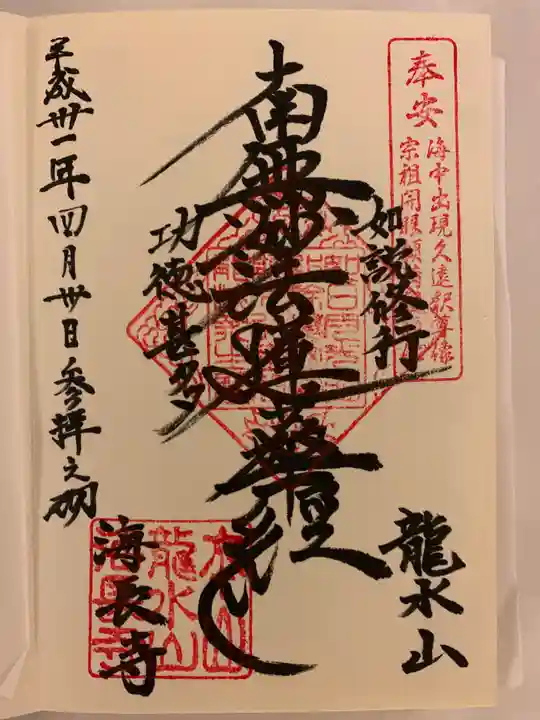 奉安
海中出現久遠釈尊様
宗祖開眼願満
如説修行
龍水山
南無妙法蓮華経
功徳甚多
海長寺
本山
龍水山
海長寺
平成卅一年四月卅日参拝之砌